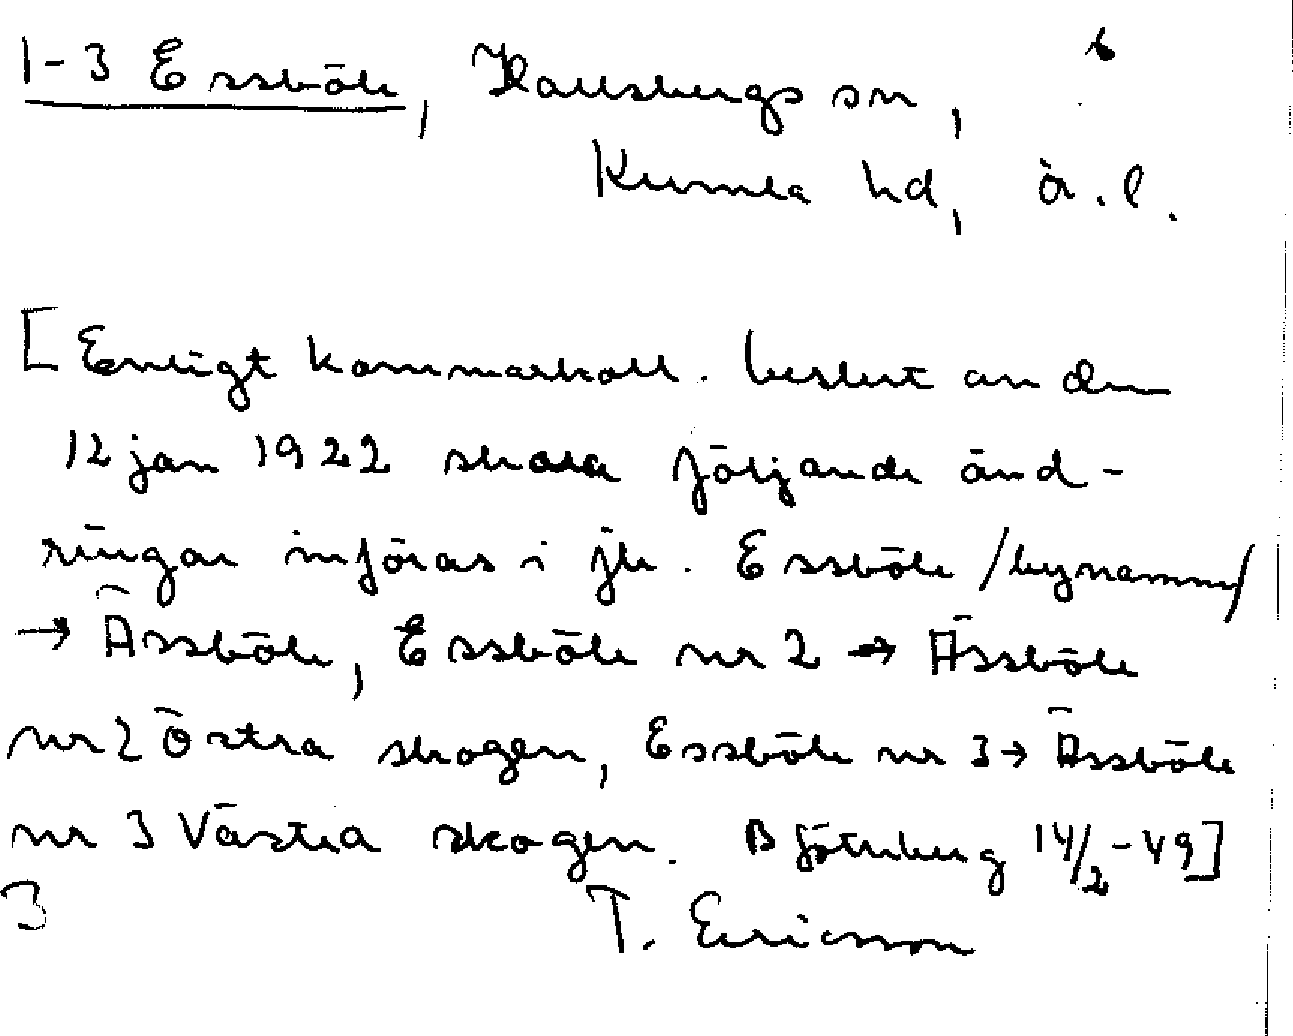 1-3 Essböle, Hallsbergs sn,
Kumla hd, ö.l.
[Enligt kammarkoll. beslut av den
12 jan 1922 skola följande änd-
ringar införas i jb. Essböle /bynamn/
→ Ässböle, Essböle nr 2 → Ässböle
nr 2 Östra skogen, Essböle nr 3 → Ässböle
nr 3 Västra skogen. B 14/2-49]
3 T. Ericsson